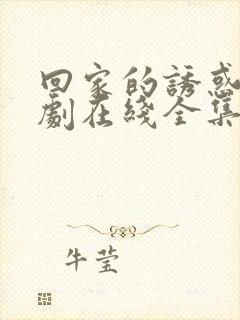 回家的誘惑
劇在綫全集
牛莹